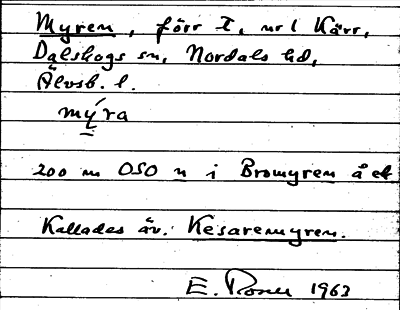 Myren, förr T, nr 1 Kärr,
Dalskogs sn, Nordals hd,
Älvsb. l.
mýra
200 m OSO n i Bromyren å ek
Kallades äv. Kesaremyren.
E. Rosell 1963